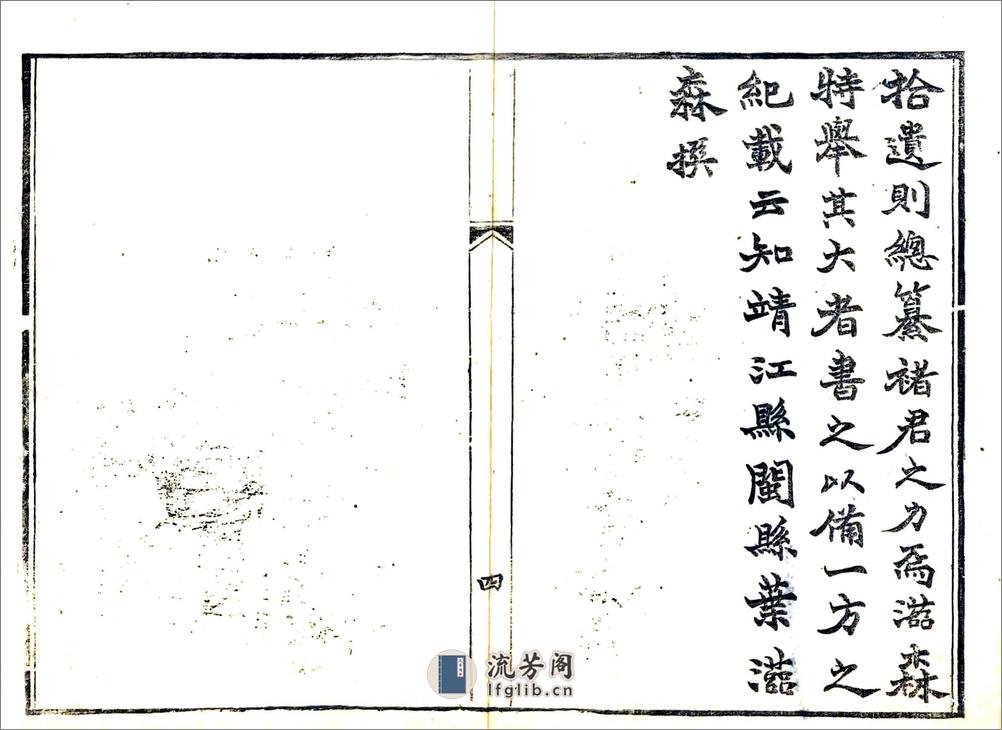 拾遺則總纂褚君之力焉滋森
特舉其大者書之以備一方之
紀載云知靖江縣閩縣葉滋
森撰
四
流芳阁
lfglib.cn